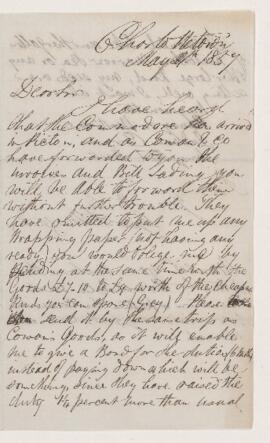 Charlottetown
May 9th 1857
Dear Sir
I have heard
that the Commodore has arrived
in Picton, and as Cowan & Co
have forwarded to you the
Invoices and Bill Lading you
will be able to forward them
without further trouble. They
have omitted to put me up any
Wrapping paper not having any
ready you would oblige me by
sending at the same time with the
Goods £ 10 to worth of the cheapest
kind you can spare (Grey). Please
send it by the same trip as
Cowan's Goods, as it will enable
me to give a Bond for the duties
instead of paying down which will be
something, since they have raised the
duty ¼ percent more than usual